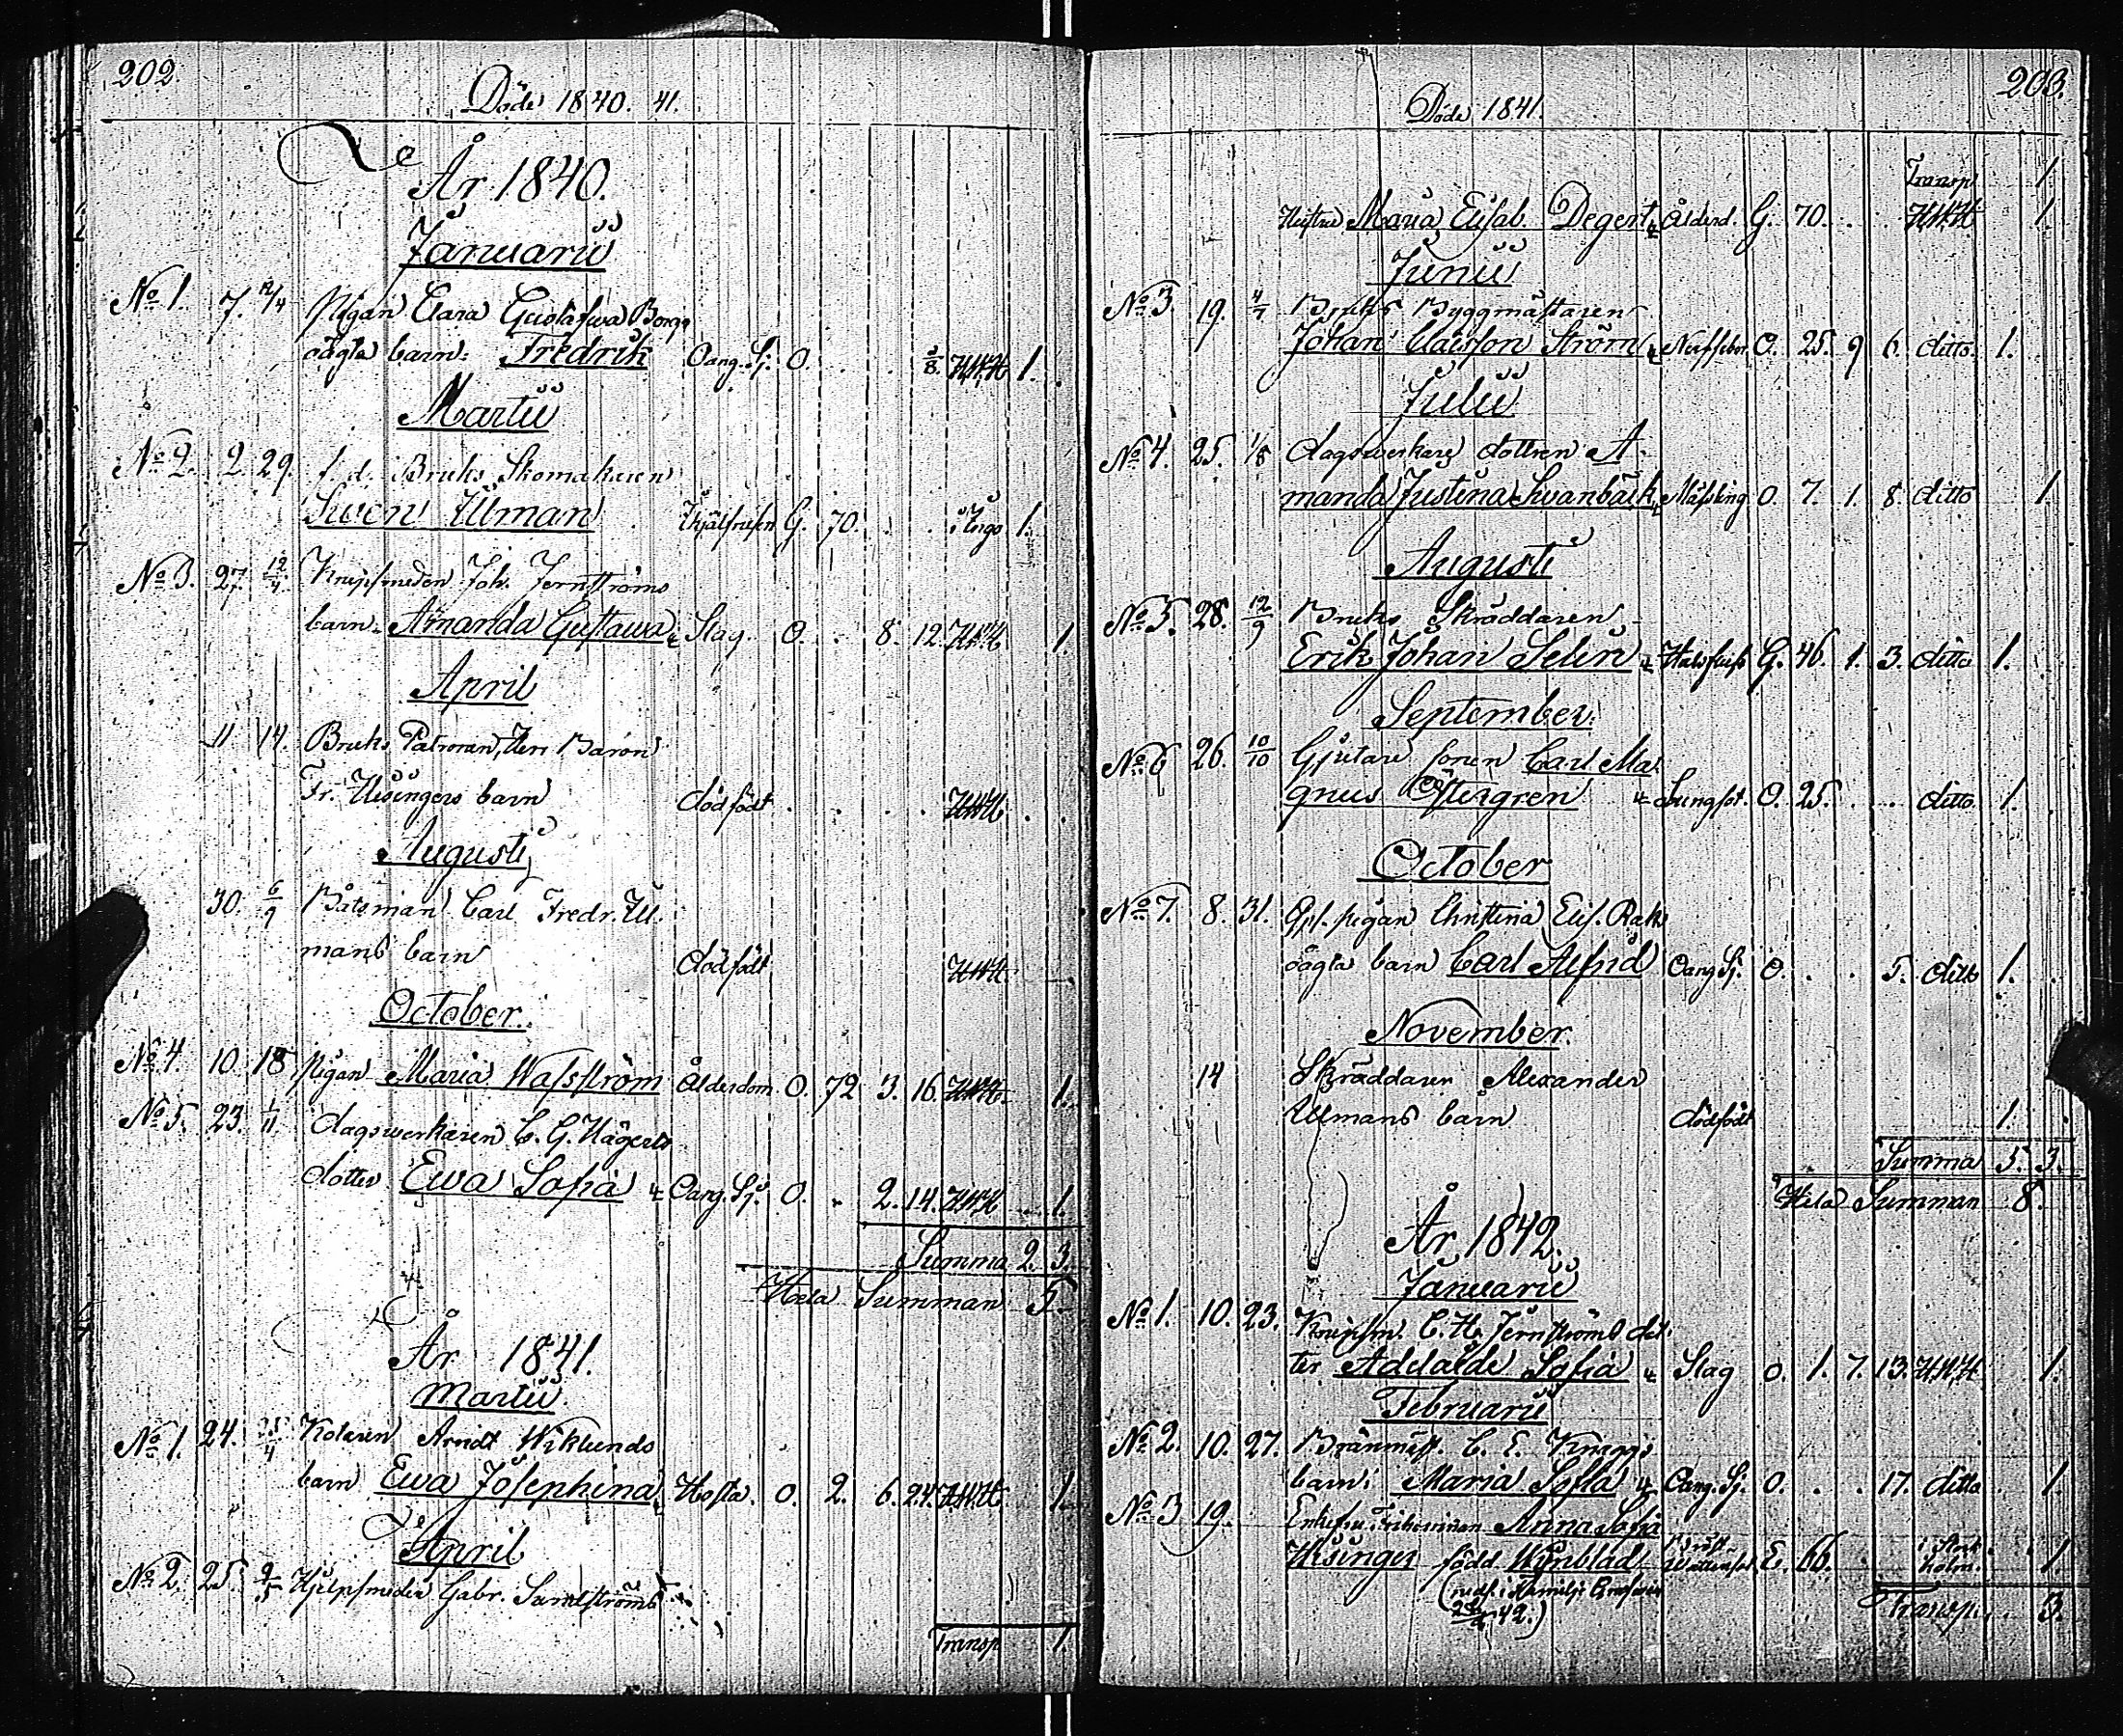 202.
Döde 1840. 41.
År 1840.
Januarii
No 1. 7. 12/4 Pigan Clara Gustafwa Borgs
oägta barn: Fredrik Oäng. Sj. O. . . 3/8. HWH 1.
Martii
No 2. 2. 29. f. d. Bruks Skomakaren
Swen Ullman G. 70. . . 1.
No 3. 27. 12/4. Knipsmeden Joh. Jernströms
barn Amanda Gustawa Slag. O. . 8. 12. HWH 1.
April
11 14. Bruks Patronen, Herr Baron
Fr. Hisingers barn dödfödt . . . . HWH . .
Augusti
30. 6/9 Båtsman Carl Fredr. Ull-
mans barn dödfödt HWH
October.
No 4. 10. 18 Pigan Maria Wassström Ålderdom O. 72 3. 16. HWH 1.
No 5. 23. 1/11. dagswerkaren C. G. Hägerts
dotter Ewa Sofia Oäng. Sj. O. . 2. 14. HWH 1.
Summa 2. 3.
Hela Summan 5.
År 1841.
Martii
No 1. 24. /4 Kolaren Arvidt Wiklunds
barn Ewa Josephina Hosta. O. 2. 6. 24. HWH 1.
April
No 2. 25. 2/5 Hjelpsmeden Gabr. Sandströms
Transp. 1.
203.
Döde 1841.
Transp. 1.
Hustru Maria Elisab. Degert Ålderd. G. 70. . . HWH 1.
Junii
No 3. 19. 4/7 Bruks Byggmästaren
Johan Ström O. 25. 9 6. ditto. 1.
Julii
No 4. 25. 1/8 dagswerkare dottren A-
manda Justina Svanbäck Mässling O. 7. 1. 8. ditto 1.
Augusti
No 5. 28. 12/9 Bruks Skräddaren
Erik Johan Selin Halsfluss G. 46. 1. 3. ditto 1.
September.
No 6 26. 10/10 Gjutare sonen Carl Ma-
gnus Östergren Lungsot. O. 25. . . ditto. 1.
October
No 7. 8. 31. pigan Christina Elis. Rak
oägta barn Carl Alfrid Oäng Sj. O. . . 5. ditto 1.
November.
14 Skräddaren Alexander
Ullmans barn dödfödt 1.
Summa 5. 3.
Hela Summan 8.
År 1842.
Januarii
No 1. 10. 23. Knipsm. C. H. Jernströms dot-
ter Adelaide Sofia Slag O. 1. 7. 13. HWH 1.
Februarii
No 2. 10. 27. Brännmäst. C. E. Knaggs
barn: Maria Sofia Oäng. Sj. O. . . 17. ditto 1.
No 3 19. Enkefru Friherrinnan Anna Sofia
Hisinger född Wijnblad Bröst- E. 66. . . i Stock-
holm. 1
(neds. i Familje Grafwen
42.)
Transp. . . 3.